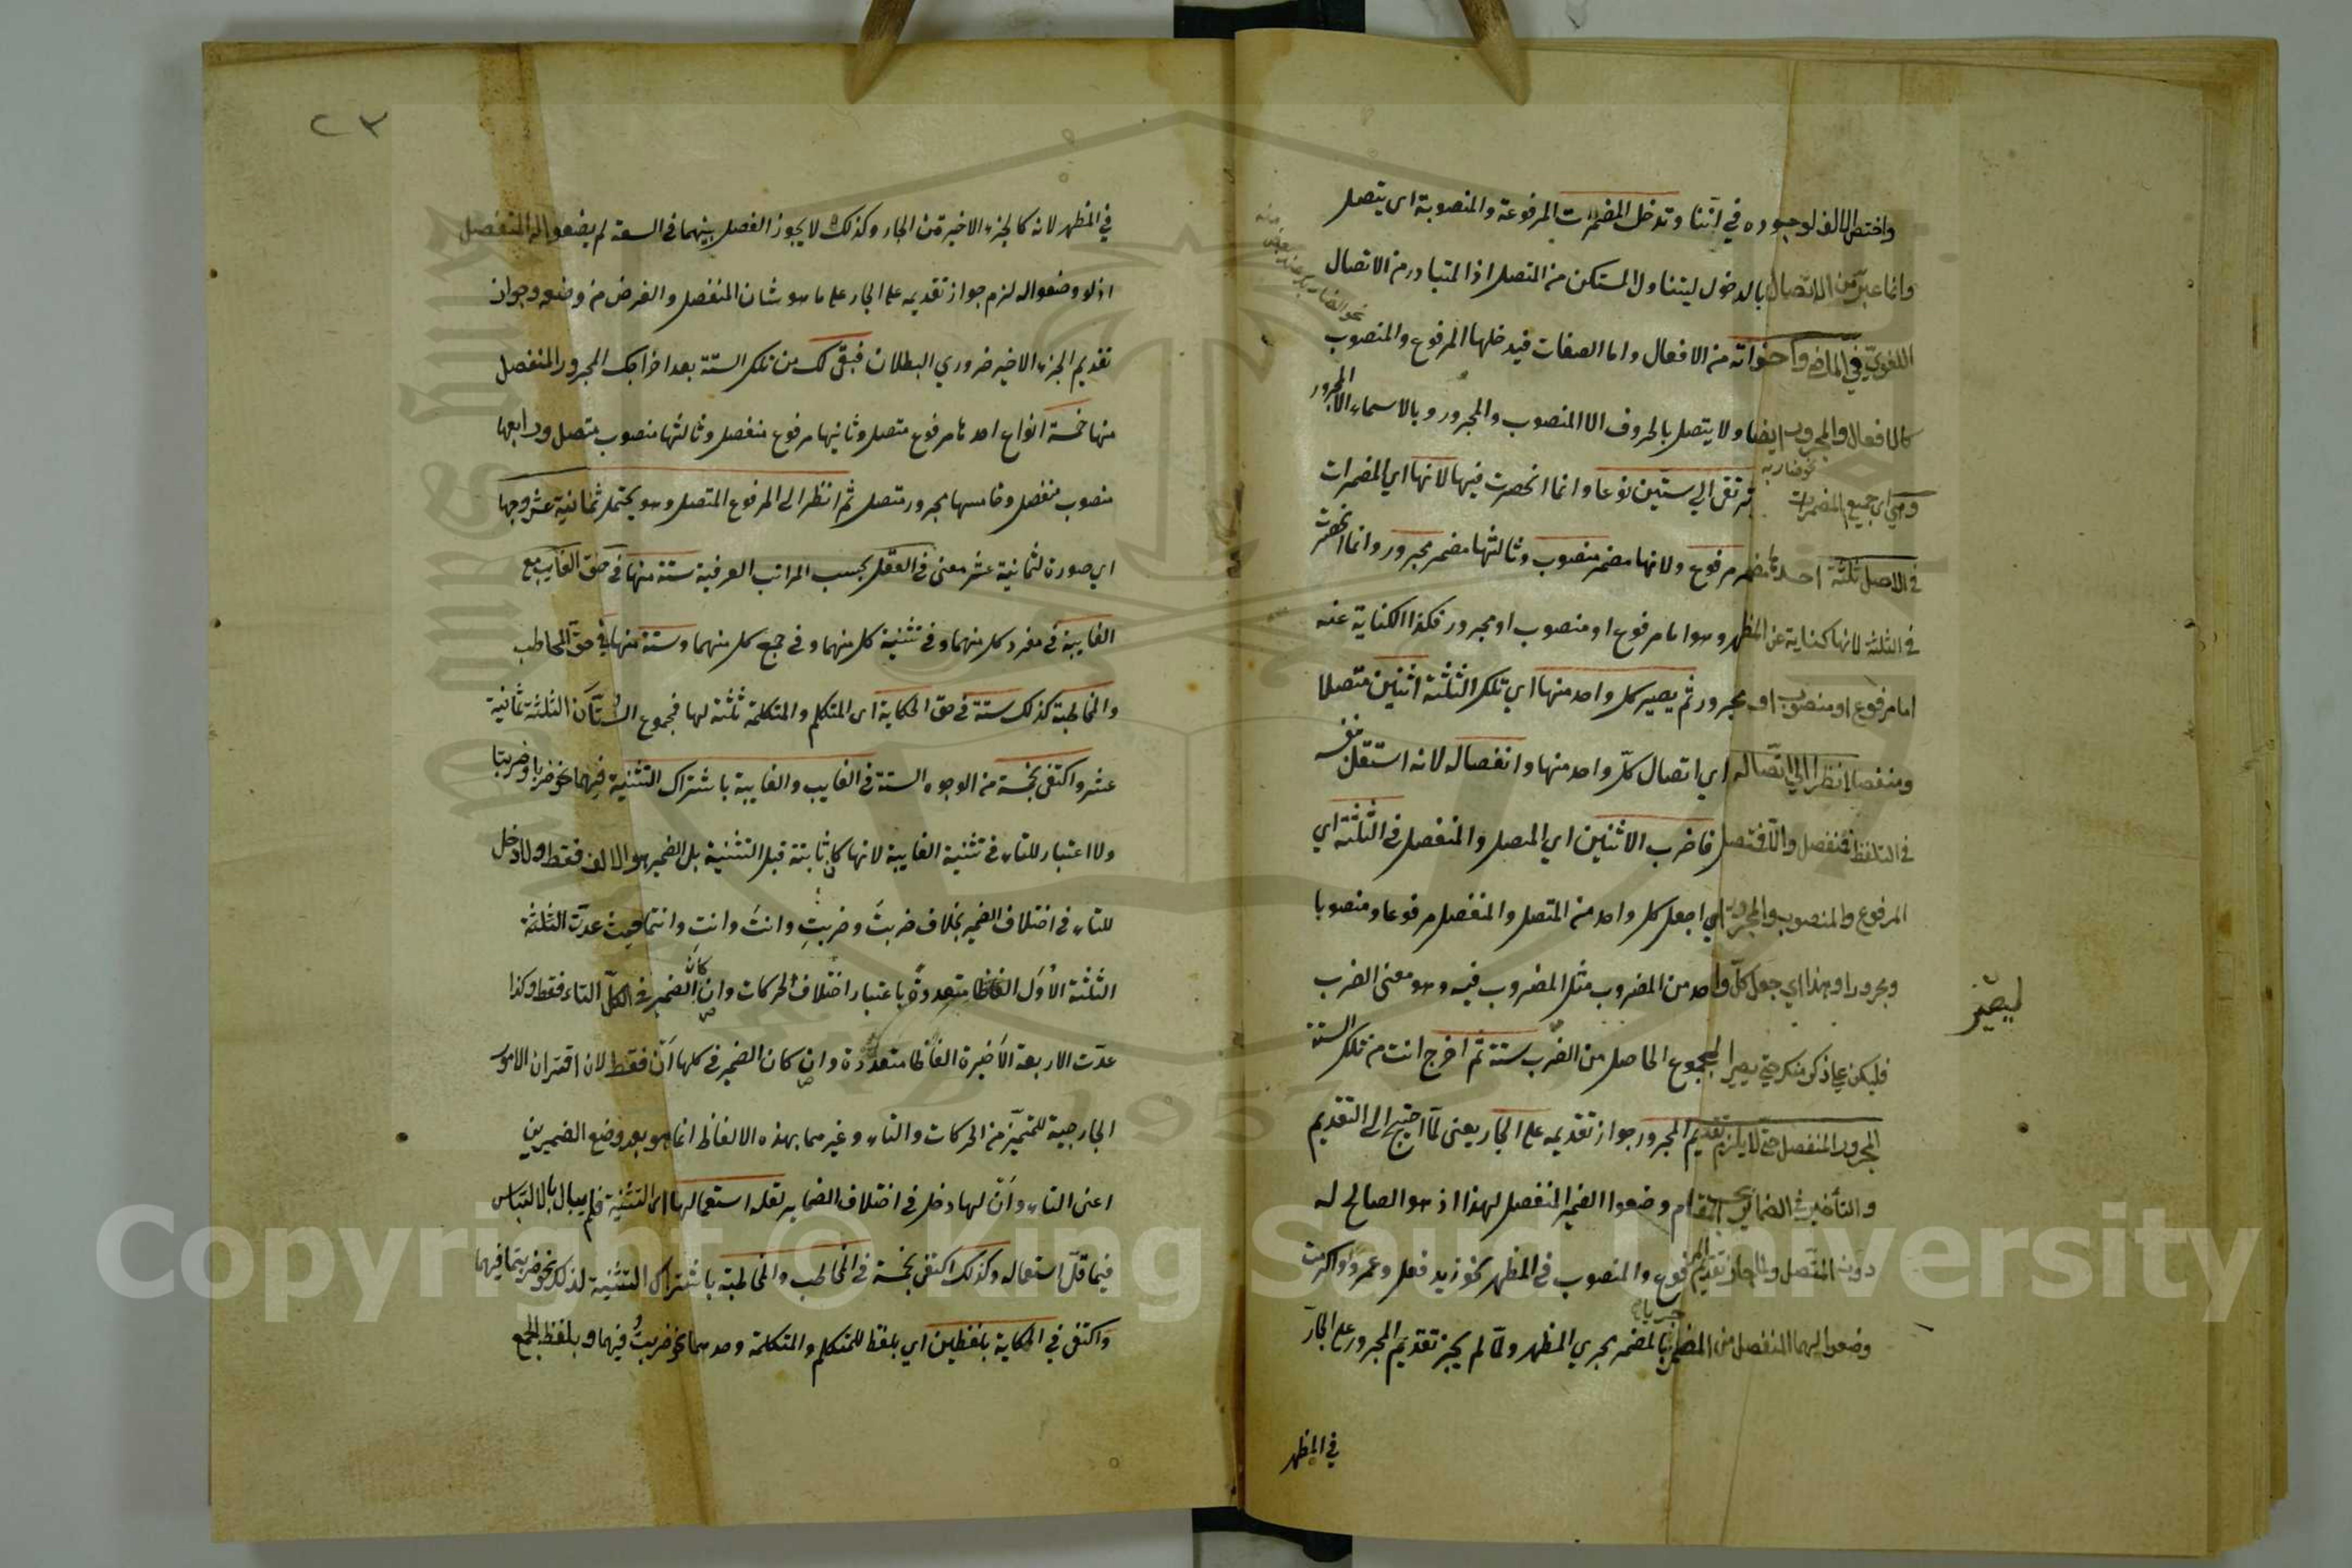 واختص الالف لوجوده في انتما وتدخل المضمرات المرفوعة والمنصوبة اى يتصل
وانما عبر عن الاتصال بالدخول ليتناول المستكن من المتصل اذ المتبادر من الاتصال
اللغوي في الماضي واخواته من الافعال واما الصفات فيدخلها المرفوع والمنصوب
كالافعال والمجرور ايضا ولا يتصل بالحروف الا المنصوب والمجرور وبالاسماء الا المجرور
نحو ضاربه
وهي اى جميع المضمرات ترتقى الي ستين نوعا وانما انحصرت فيها لانها اي المضمرات
في الاصل ثلثة احدها مضمر مرفوع وثانيها مضمر منصوب وثالثها مضمر مجرور وانما انحصرت
في الثلثة لانها كناية عن المظهر وهو اما مرفوع او منصوب او مجرور فكذا الكناية عنه
اما مرفوع او منصوب او مجرور ثم يصير كل واحد منها اي تلك الثلثة اثنين متصلا
ومنفصلا نظرا الي اتصاله اي اتصال كل واحد منها وانفصاله لانه استقل بنفسه
في التلفظ فمنفصل والا فمتصل فاضرب الاثنين اي المتصل والمنفصل في الثلثة اي
المرفوع والمنصوب والمجرور اي اجعل كل واحد من المتصل والمنفصل مرفوعا ومنصوبا
ومجرورا وبهذا اي جعل كل واحد من المضروب مثل المضروب فيه وهو معنى الضرب
ليصير
فليكن على ذكر منك حتى يصير المجموع الحاصل من الضرب ستة ثم اخرج انت من تلك الستة
المجرور المنفصل حتى لا يلزم تقديم المجرور جواز تقديمه على الجار يعنى لما احتيج الى التقديم
والتأخير في الضمائر بحسب المقام وضعوا الضمير المنفصل لهذا اذ هو الصالح له
دون المتصل ولما جاز تقديم المرفوع والمنصوب في المظهر نحو زيد فعل وعمروا اكرمت
وضعوا لهما المنفصل من المضمر بالمضمر مجري المظهر ولما لم يجز تقديم المجرور على الجار
في المظهر
٢٣
في المظهر لانه كالجزء الاخير من الجار وكذلك لا يجوز الفصل بينهما في السعة لم يضعوا له المنفصل
اذ لو وضعوا له لزم جواز تقديمه على الجار على ما هو شان المنفصل والغرض من وضعه وجواز
تقديم الجزء الاخير ضروري البطلان فبقى لك من تلك الستة بعد اخراجك المجرور المنفصل
منها خمسة انواع احدها مرفوع متصل وثانيها مرفوع منفصل وثالثها منصوب متصل ورابعها
منصوب منفصل وخامسها مجرور متصل ثم انظر الى المرفوع المتصل وهو يحتمل ثمانية عشر وجها
اي صورة لثمانية عشر معنى في العقل بحسب المراتب العرفية ستة منها في حق الغايب مع
الغايبة في مفرد كل منهما وفي تثنية كل منهما وفي جمع كل منهما وستة منها في حق المخاطب
والمخاطبة كذلك ستة في حق الحكاية اى المتكلم والمتكلمة ثلثة لها فمجموع الستان الثلثة ثمانية
عشر واكتفى بخمسة من الوجوه الستة في الغايب والغايبة باشتراك التثنية فيهما نحو ضربا وضربتا
ولا اعتبار للتاء في تثنية الغايبة لانها كانت ثابتة قبل التثنية بل الضمير هو الالف فقط ولا دخل
للتاء في اختلاف الضمير بخلاف ضربتَ وضربتِ وانتَ وانتِ وانتما حيث عدت الثلثة
الثلثة الاُوَل الفاظا متعددة باعتبار اختلاف الحركات وان كان الضمير في الكل التاء فقط وكذا
عدت الاربعة الاخيرة الفاظا متعددة وان كان الضمير في كلها اَنْ فقط لان اقتران الامور
الخارجية للتميز من الحركات والتاء وغيرهما بهذه الالفاظ انما هو بعد وضع الضميرين
اعنى التاء واَنْ لها دخل في اختلاف الضماير لقلة استعمالها اى التثنية فلم يبال بالالتباس
فيما قل استعماله وكذلك اكتفى بخمسة في المخاطب والمخاطبة باشتراك التثنية لذلك نحو ضربتما فيهما
واكتفى في الحكاية بلفظين اي بلفظ للمتكلم والمتكلمة وحدهما نحو ضربتُ فيهما وبلفظ الجمع
Copyright © King Saud University